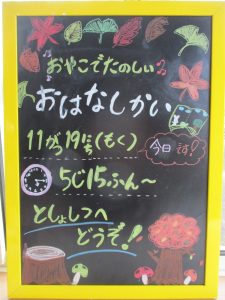 おやこでたのしい
おはなしかい
11がつ19にち(もく)
今日です!
5じ15ふん~
としょしつへ
どうぞ!